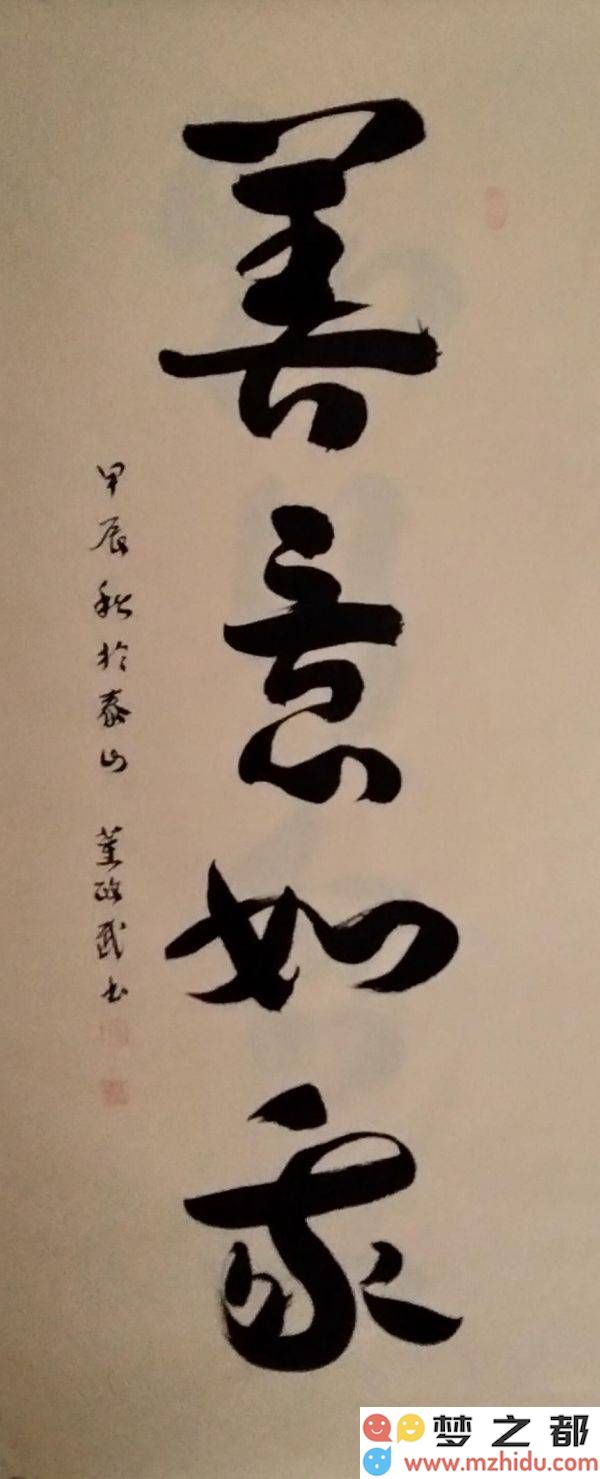 善意如家
甲辰秋於泰山 董政武书
梦之都
www.mzhidu.com